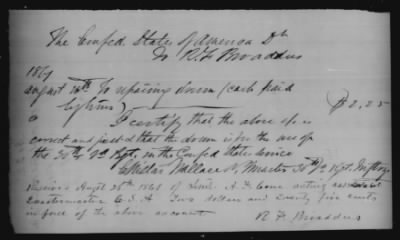 The Confed. States of America Dr
To R. F. Broaddus
1861
August 16th To repairing drum (cash paid
$2.25
I certify that the above a/c is
correct and just & that the drum is for the use of
the 30th Va Regt, in the Confed States Service
Wallace Qr Master 30th Va Regt
Received Augst 26th 1861 of Lieut. A. F. Cone acting assistant
Quartermaster C.S.A Two dollars and twenty five cents
in full of the above account
R F Broaddus